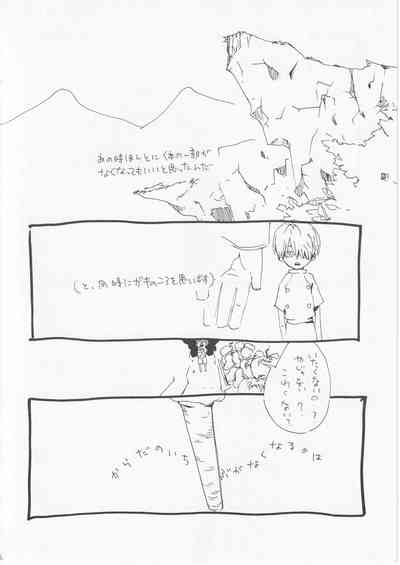 あの時ほんとに体の一部が
なくなってもいいと思ったんだ
(と、ふ時にガキのころを思います)
いたくないの?
やじゃない?
こわくない?
からだのいちぶがなくなるのは